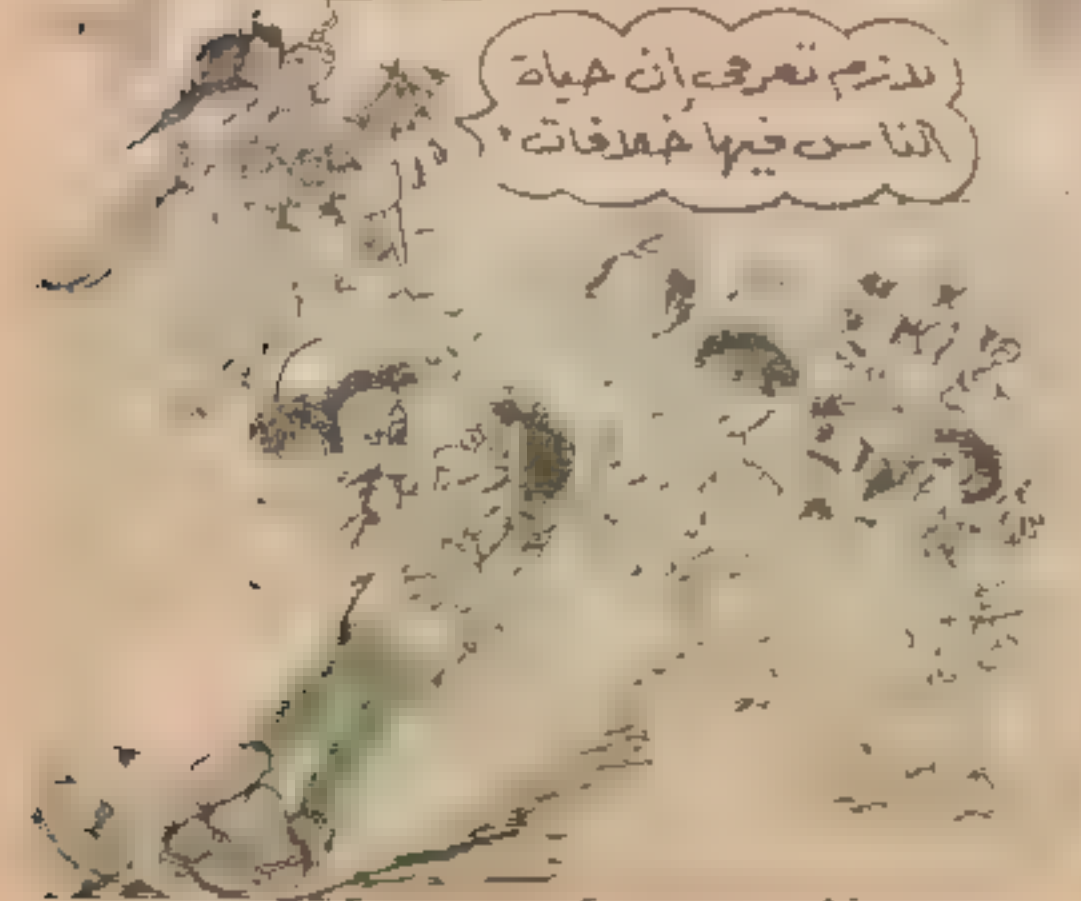 لازم تعرفى أن حياة
الناس فيها خلافات